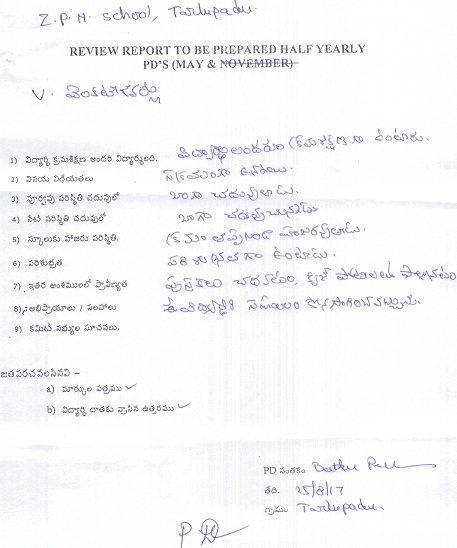 Z.P.H School, Tarlupadu.
REVIEW REPORT TO BE PREPARED HALF YEARLY
PD'S (MAY & NOVEMBER)
V. వెంకటేశ్వర్లు
1) విద్యార్థి క్రమశిక్షణ అందరి విద్యార్థులది. విద్యార్థులందరూ క్రమశిక్షణ గా ఉంటారు.
2) వినయ విధేయతలు సక్రమంగా ఉన్నాయి.
3) పూర్వపు పరిస్థితి చదువులో బాగా చదువుతాడు.
4) నేటి పరిస్థితి చదువులో బాగా చదువుచున్నాడు
5) స్కూలుకు హాజరు పరిస్థితి. క్రమం తప్పకుండా హాజరవుతాడు.
6) పరిశుభ్రత పరిశుభ్రత గా ఉంటాడు.
7) ఇతర అంశములలో ప్రావీణ్యత పుస్తకాలు చదవటం,
8) అభిప్రాయాలు / సలహాలు ఈ విద్యార్థికి సహాయం కొనసాగించవచ్చును.
9) కమిటీ సభ్యుల సూచనలు.
జతపరచవలసినవి –
a) మార్కుల పత్రము ✓
b) విద్యార్థి దాతకు వ్రాసిన ఉత్తరము ✓
PD సంతకం
తేది. 25/8/17
గ్రామం Tarlupadu.